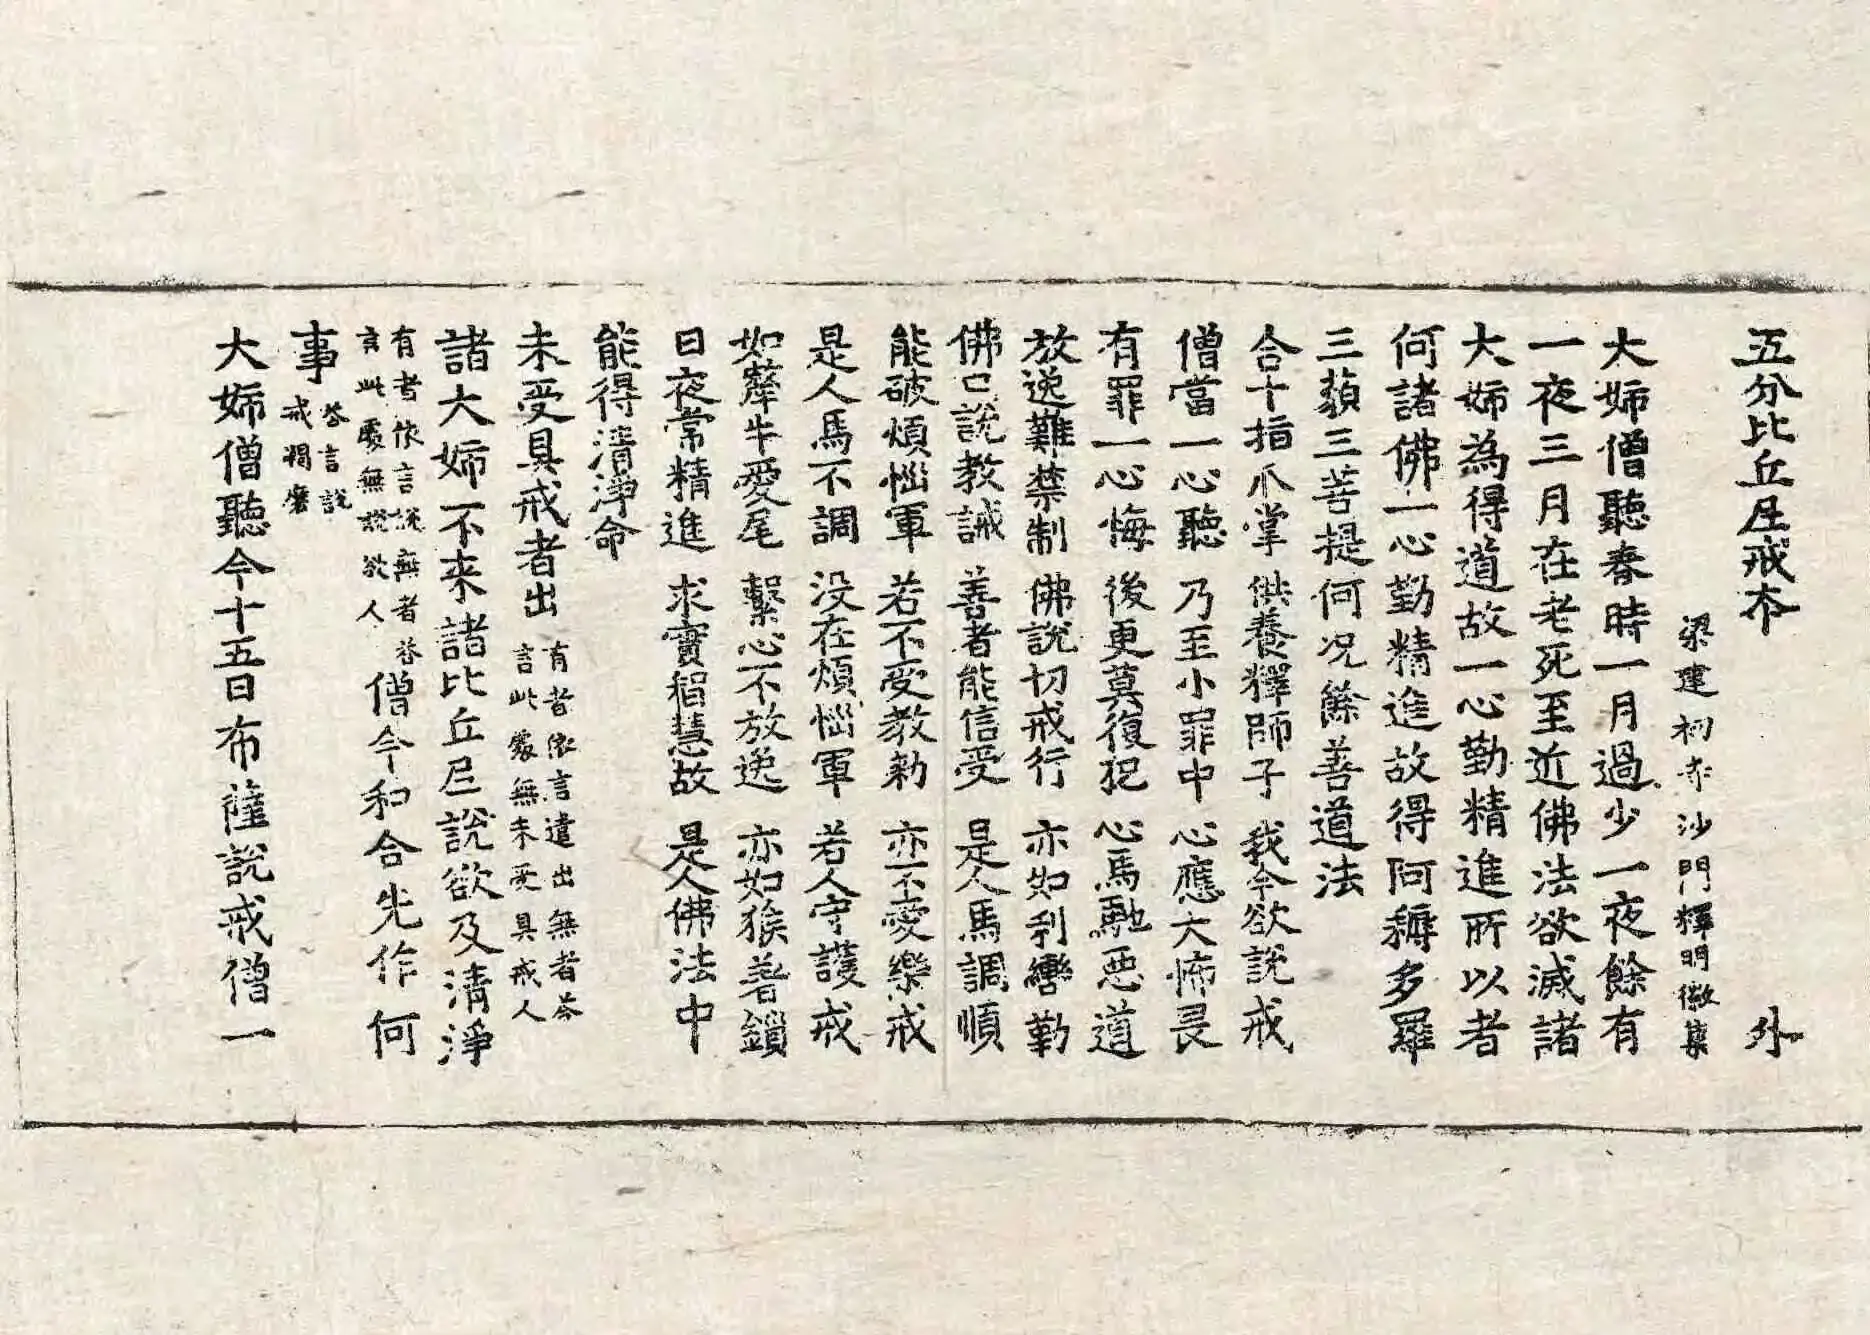 五分比丘尼戒本 外
梁建初寺沙門釋明徽集
大姊僧聽春時一月過少一夜餘有
一夜三月在老死至近佛法欲滅諸
大姊為得道故一心勤精進所以者
何諸佛一心勤精進故得阿耨多羅
三藐三菩提何況餘善道法
合十指爪掌 供養釋師子 我今欲說戒
僧當一心聽 乃至小罪中 心應大怖畏
有罪一心悔 後更莫復犯 心馬馳惡道
放逸難禁制 佛說切戒行 亦如利轡勒
佛口說教誡 善者能信受 是人馬調順
能破煩惱軍 若不受教勑 亦不愛樂戒
是人馬不調 没在煩惱軍 若人守護戒
如犛牛愛尾 繫心不放逸 亦如猴著鎖
日夜常精進 求實智慧故 是人佛法中
能得清淨命
未受具戒者出 有者依言遣出無者荅
言此處無未受具戒人
諸大姊不来諸比丘尼說欲及清淨
有者依言說無者荅
言此處無說欲人 僧今和合先作何
事 荅言說
戒羯磨
大姊僧聽今十五日布薩說戒僧一